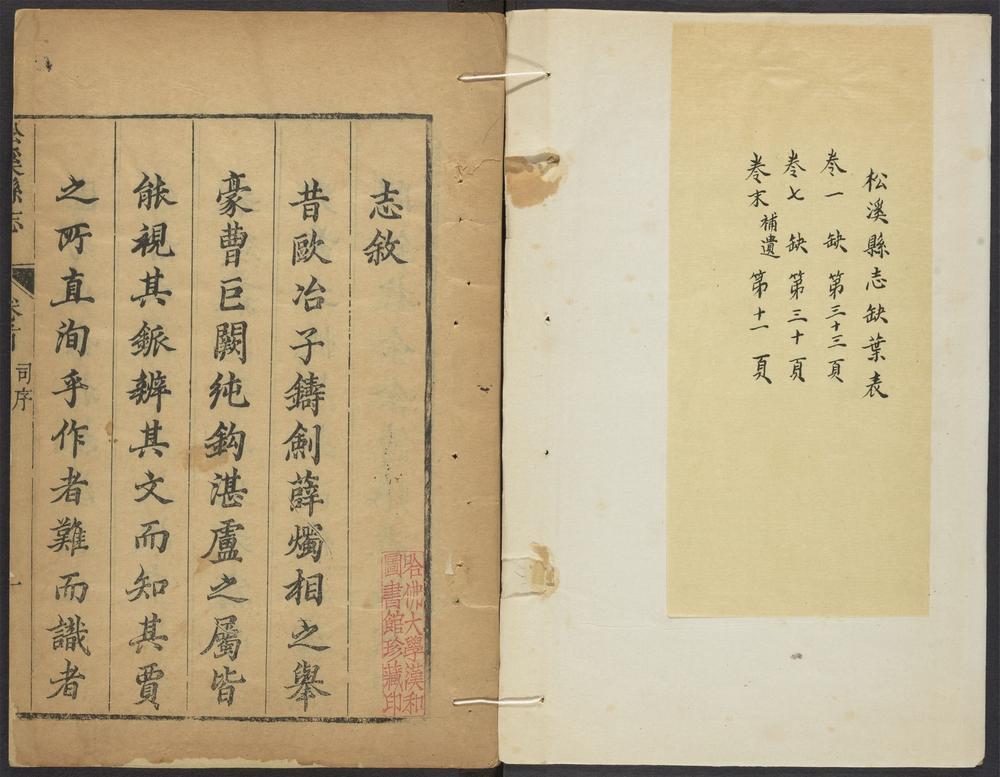 松溪縣志缺葉表
卷一 缺 第三十三頁
卷七 缺 第三十頁
卷末 補遺 第十一頁
志敘
昔歐冶子鑄劍薛燭相之舉
豪曹巨闕純鈎湛盧之屬皆
能視其鈲辨其文而知其賈
之所直洵乎作者難而識者
松溪縣志 卷首 司序 一
哈佛大學漢和
圖書館珍藏印